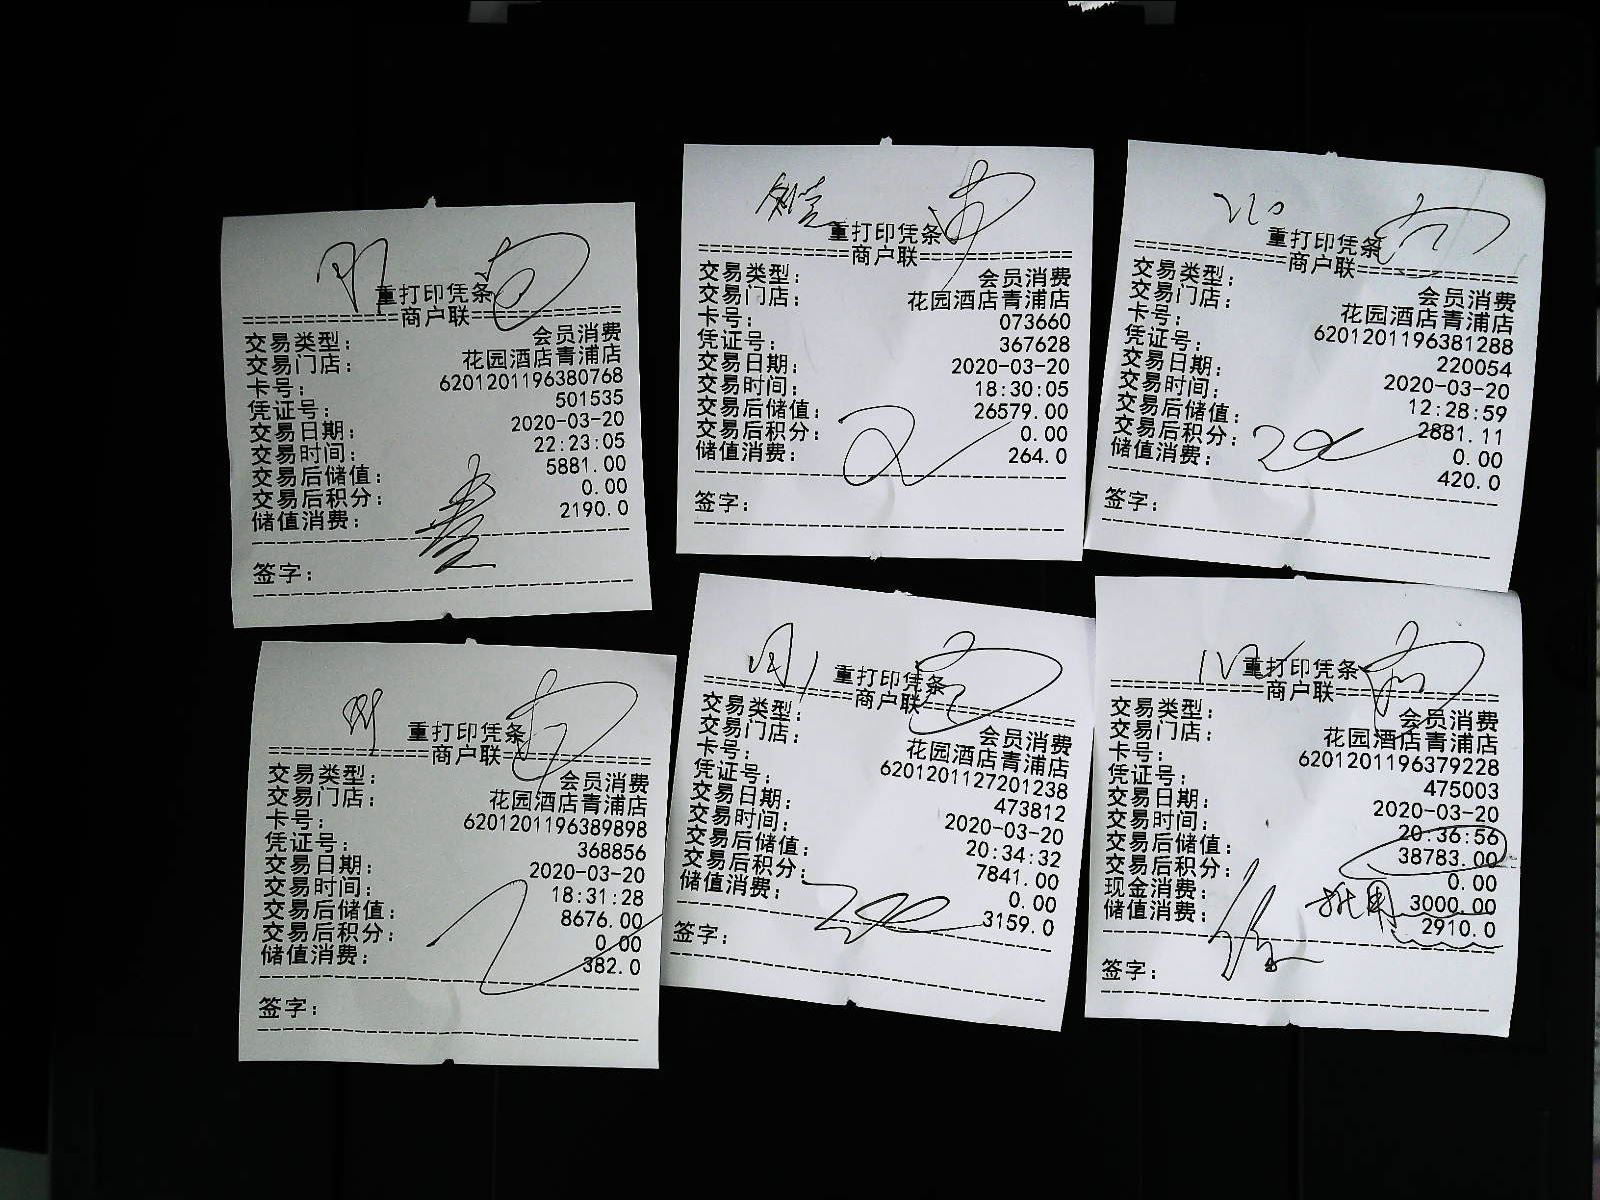 重打印凭条
============商户联============
交易类型: 会员消费
交易门店: 花园酒店青浦店
卡号: 6201201196380768
凭证号: 501535
交易日期: 2020-03-20
交易时间: 22:23:05
交易后储值: 5881.00
交易后积分: 0.00
储值消费: 2190.0
签字:
重打印凭条
============商户联============
交易类型: 会员消费
交易门店: 花园酒店青浦店
卡号: 073660
凭证号: 367628
交易日期: 2020-03-20
交易时间: 18:30:05
交易后储值: 26579.00
交易后积分: 0.00
储值消费: 264.0
签字:
重打印凭条
============商户联============
交易类型: 会员消费
交易门店: 花园酒店青浦店
卡号: 6201201196381288
凭证号: 220054
交易日期: 2020-03-20
交易时间: 12:28:59
交易后储值: 2881.11
交易后积分: 0.00
储值消费: 420.0
签字:
重打印凭条
============商户联============
交易类型: 会员消费
交易门店: 花园酒店青浦店
卡号: 6201201196389898
凭证号: 368856
交易日期: 2020-03-20
交易时间: 18:31:28
交易后储值: 8676.00
交易后积分: 0.00
储值消费: 382.0
签字:
重打印凭条
============商户联============
交易类型: 会员消费
交易门店: 花园酒店青浦店
卡号: 6201201127201238
凭证号: 473812
交易日期: 2020-03-20
交易时间: 20:34:32
交易后储值: 7841.00
交易后积分: 0.00
储值消费: 3159.0
签字:
重打印凭条
============商户联============
交易类型: 会员消费
交易门店: 花园酒店青浦店
卡号: 6201201196379228
凭证号: 475003
交易日期: 2020-03-20
交易时间: 20:36:56
交易后储值: 38783.00
交易后积分: 0.00
现金消费: 3000.00
储值消费: 2910.0
签字: